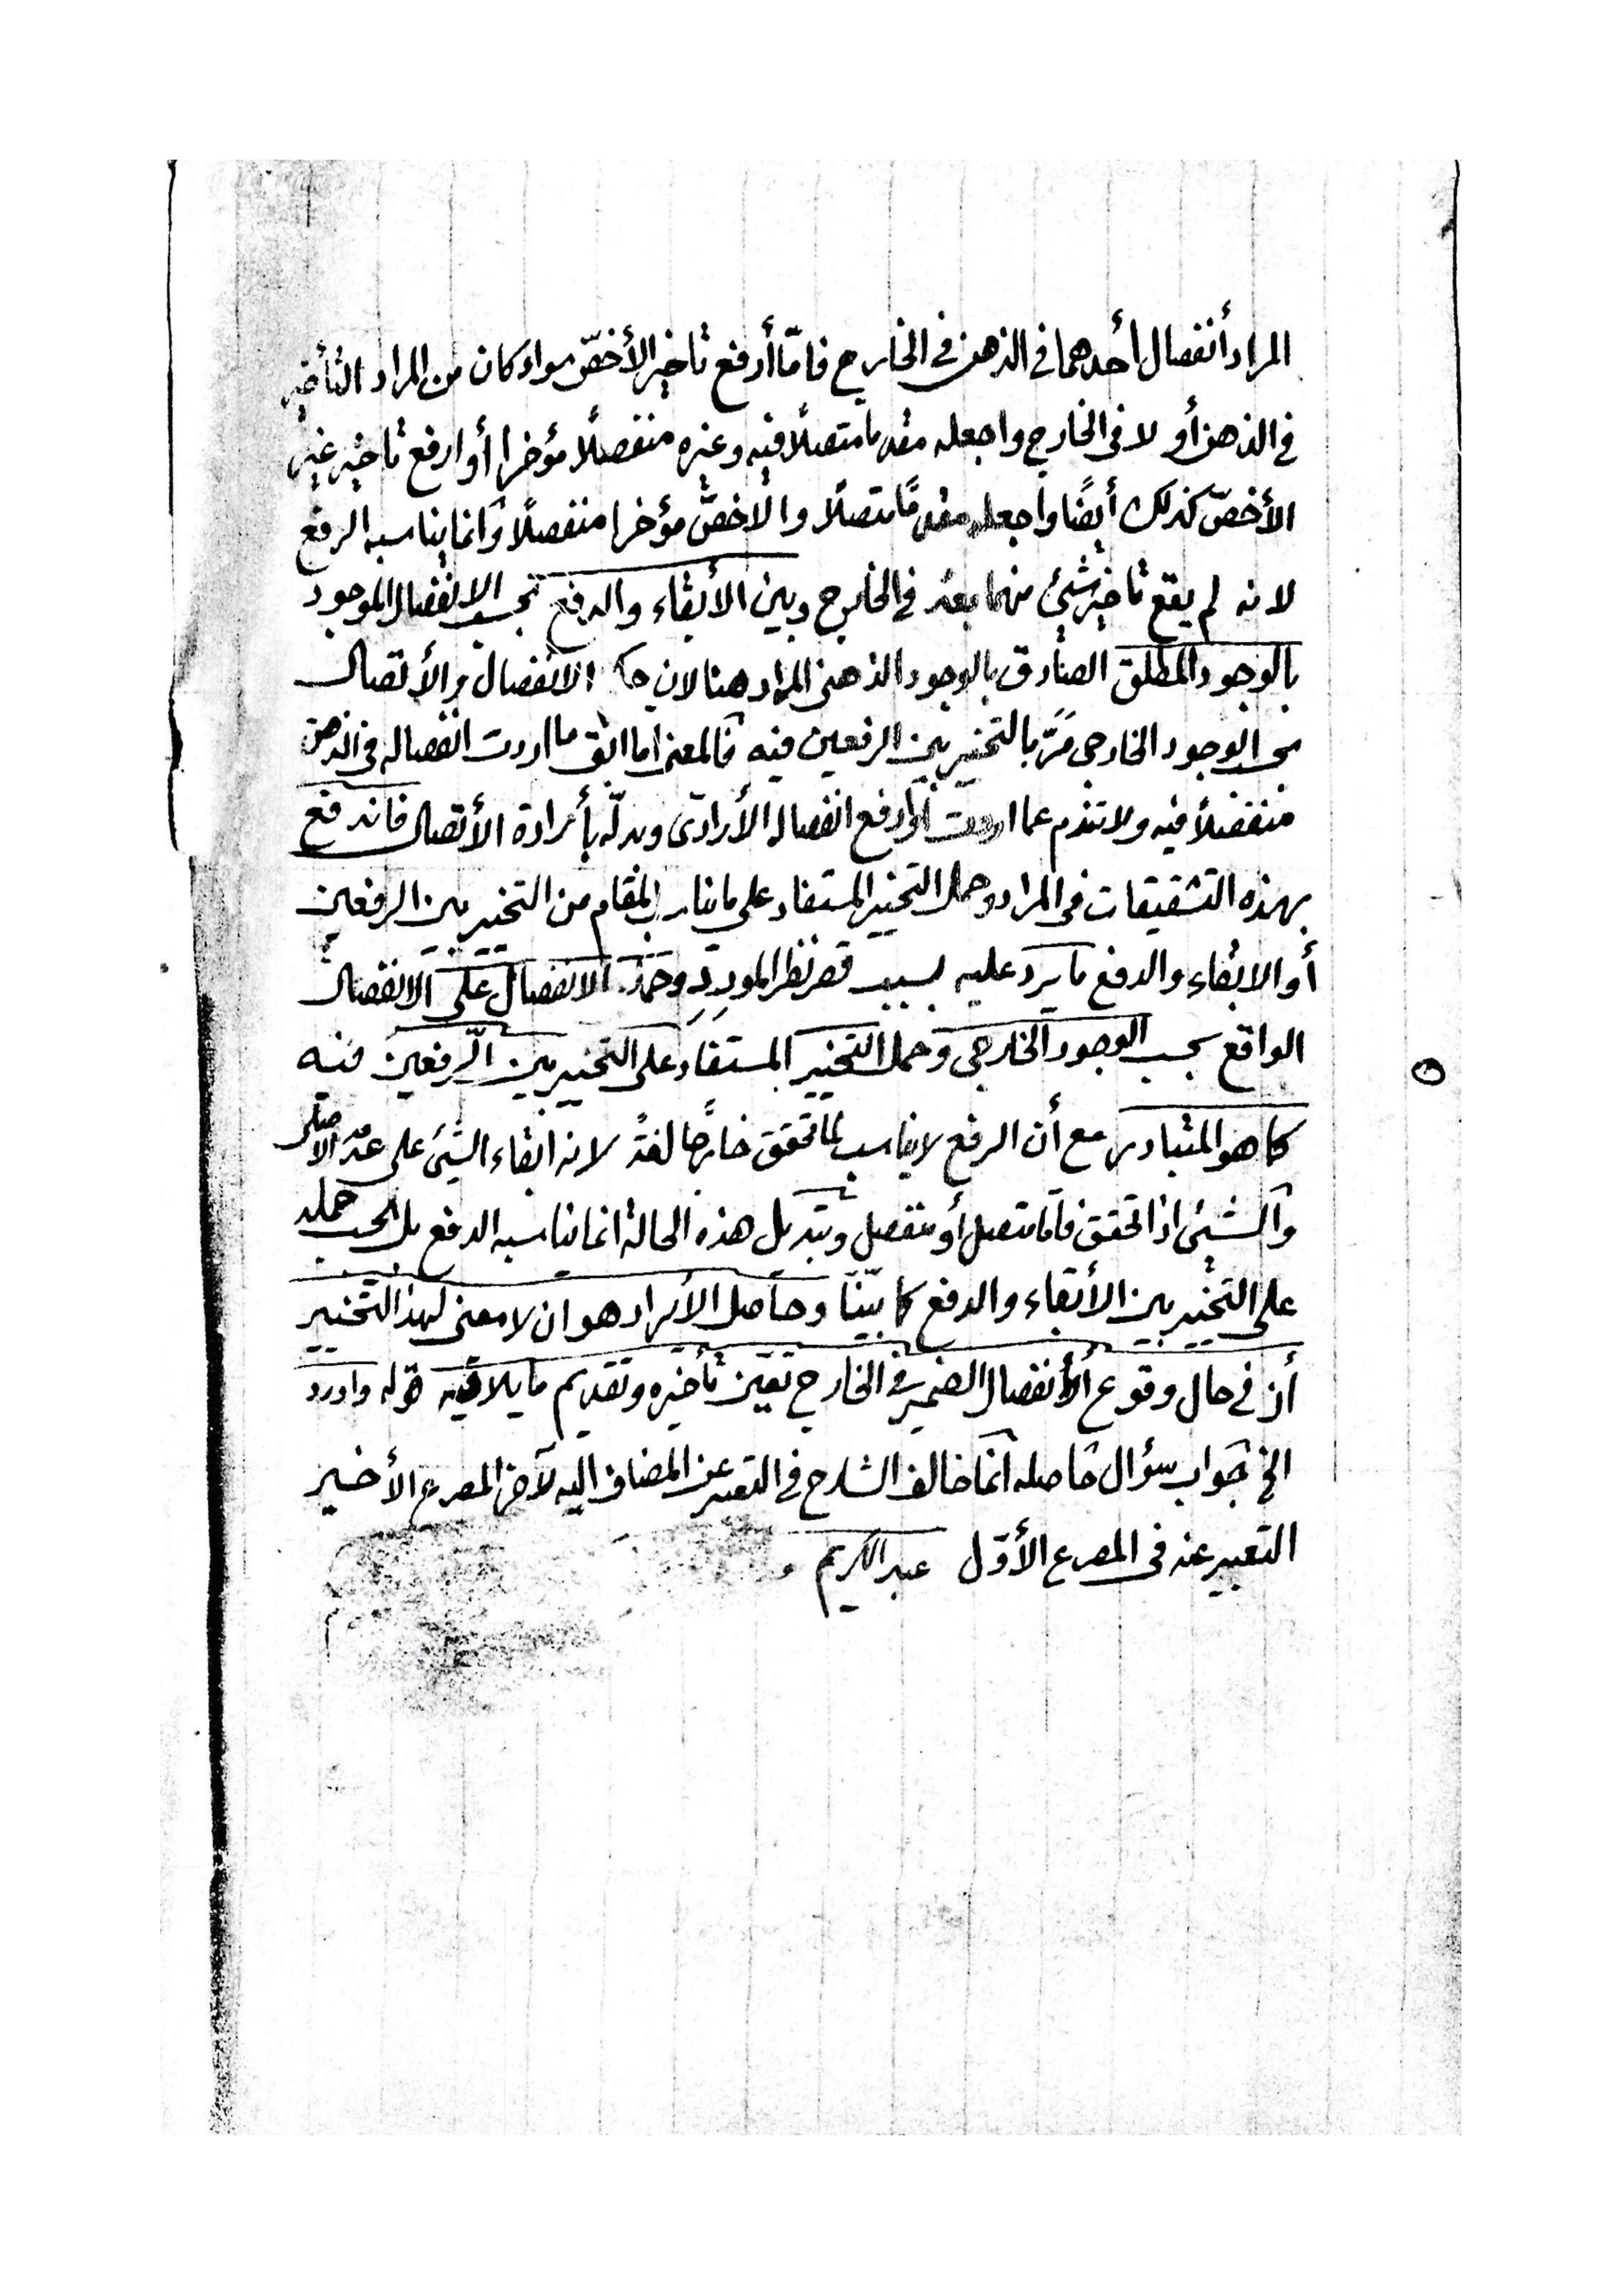 المراد أنفصال أحدهما في الذهن في الخارج فامّا أرفع تاخير الأخصّ سواء كان من المراد التأخير
في الذهن أو لا في الخارج واجعله مقدما متصلًا فيه وغيره منفصلًا مؤخرا أو ارفع تاخير غير
الأخصّ كذلك أيضًا واجعله مقدمًا متصلًا والاخصّ مؤخرا منفصلًا وانما يناسبه الرفع
لانه لم يقع تاخير شئ منهما بعد في الخارج وبين الأبقاء والدفع بحسب الانفصال الموجود
بالوجود المطلق الصادق بالوجود الذهنى المراد هنا لان الانفصال والأتصال
بحسب الوجود الخارجى مرّ بالتخيير بين الرفعين فيه فالمعنى اما ابق ما اردت انفصاله في الذهن
منفصلًا فيه ولا تندم عما اردت أو ارفع انفصال الأرادى وبدلّه بأرادة الأتصال فاندفع
بهذه التشقيقات في المراد وحمل التخيير المستفاد على ما يناسب المقام من التخيير بين الرفعين
أو الابقاء والدفع ما يرد عليه بسبب قصر نظر المورِدِ وحمل الانفصال على الانفصال
الواقع بحسب الوجود الخارجى وحمل التخيير المستفاد على التخيير بين الرّفعين فيه
كما هو المتبادر مع أن الرفع لا يناسب لما تحقق خارجا لغةً لانه ابقاء الشئ على عدمه الاصلى
والشئ اذا تحقق فامّا متصل أو منفصل وتبديل هذه الحالة انما يناسبه الدفع بل يجب حمله
على التخيير بين الأبقاء والدفع كما بيّنّا وحاصل الأيراد هو ان لا معنى لهذا التخيير
أذ في حال وقوع أنفصال الضمير في الخارج تعيّن تأخيره وتقديم ما يلاقيه قوله واورد
الخ جواب سؤال حاصله انما خالف الشارح في التعبير عن المضاف اليه لآخر المصرع الأخير
التعبير عنه في المصرع الأوّل عبد الكريم